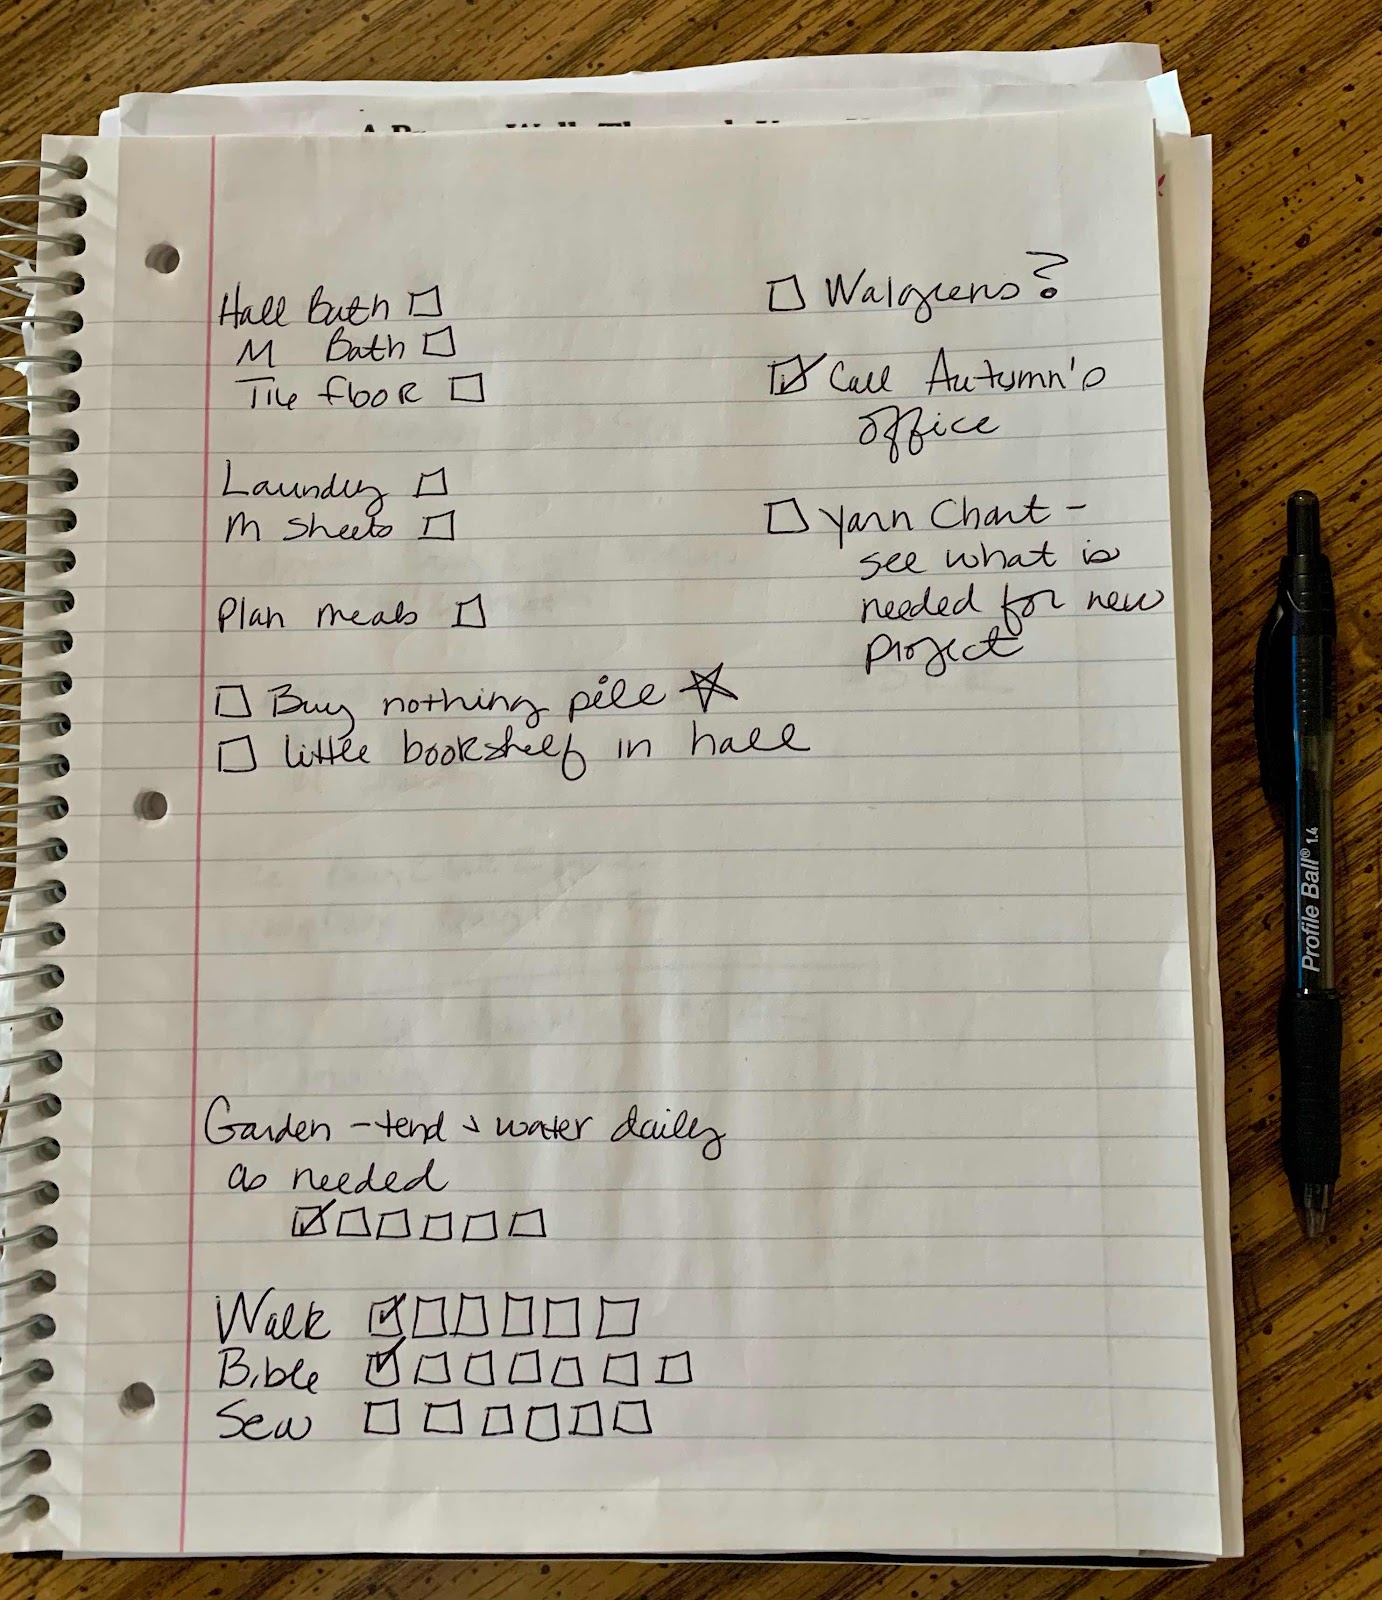 Hall Bath ☐
M Bath ☐
Tile floor ☐
Laundry ☐
M Sheets ☐
Plan meals ☐
☐ Buy nothing pile ☆
☐ little bookshelf in hall
☐ Walgreens?
☑ Call Autumn's
office
☐ Yarn Chart -
see what is
needed for new
project
Garden - tend & water daily
as needed
☑☐☐☐☐☐
Walk ☑☐☐☐☐☐
Bible ☑☐☐☐☐☐☐
Sew ☐☐☐☐☐☐
Profile Ball® 1.4